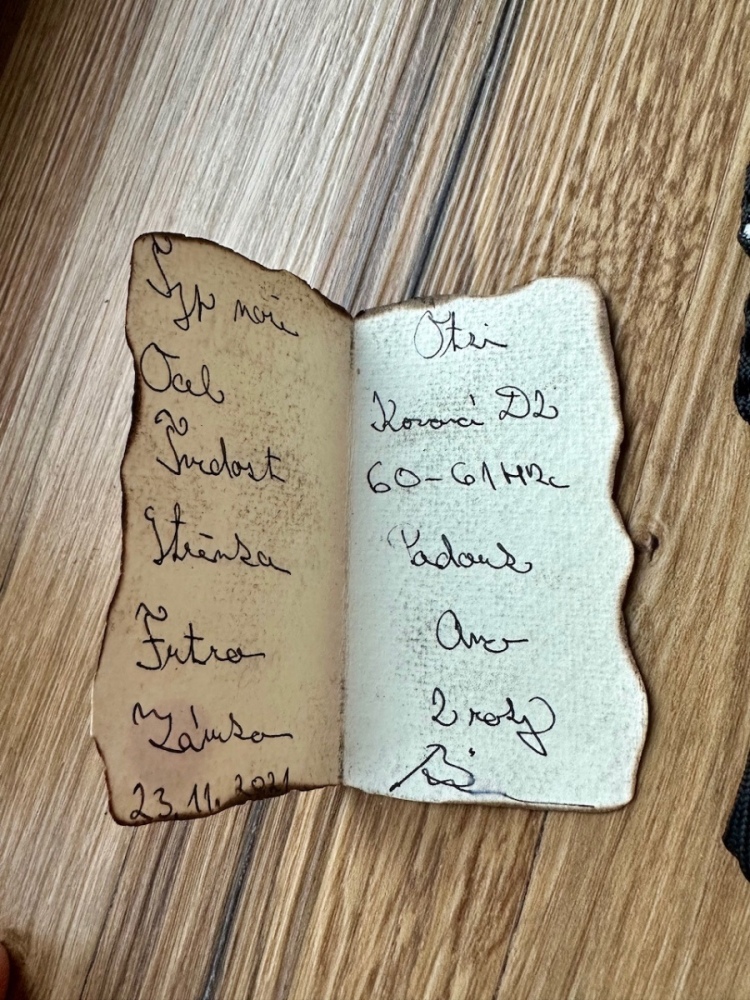 Typ nože
Ocel
Tvrdost
Střenka
Futro
Záruka
23.11.2021
Otzi
Kovaná D2
60-61 HRc
Padouk
Ano
2 roky